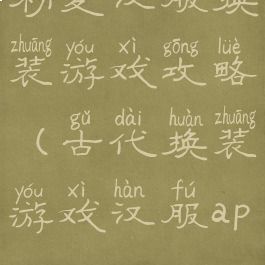 zhuāng yóu xì gōng lüè
装游戏攻略
gǔ dài huàn zhuāng
（古代换装
yóu xì hàn fú
游戏汉服ap